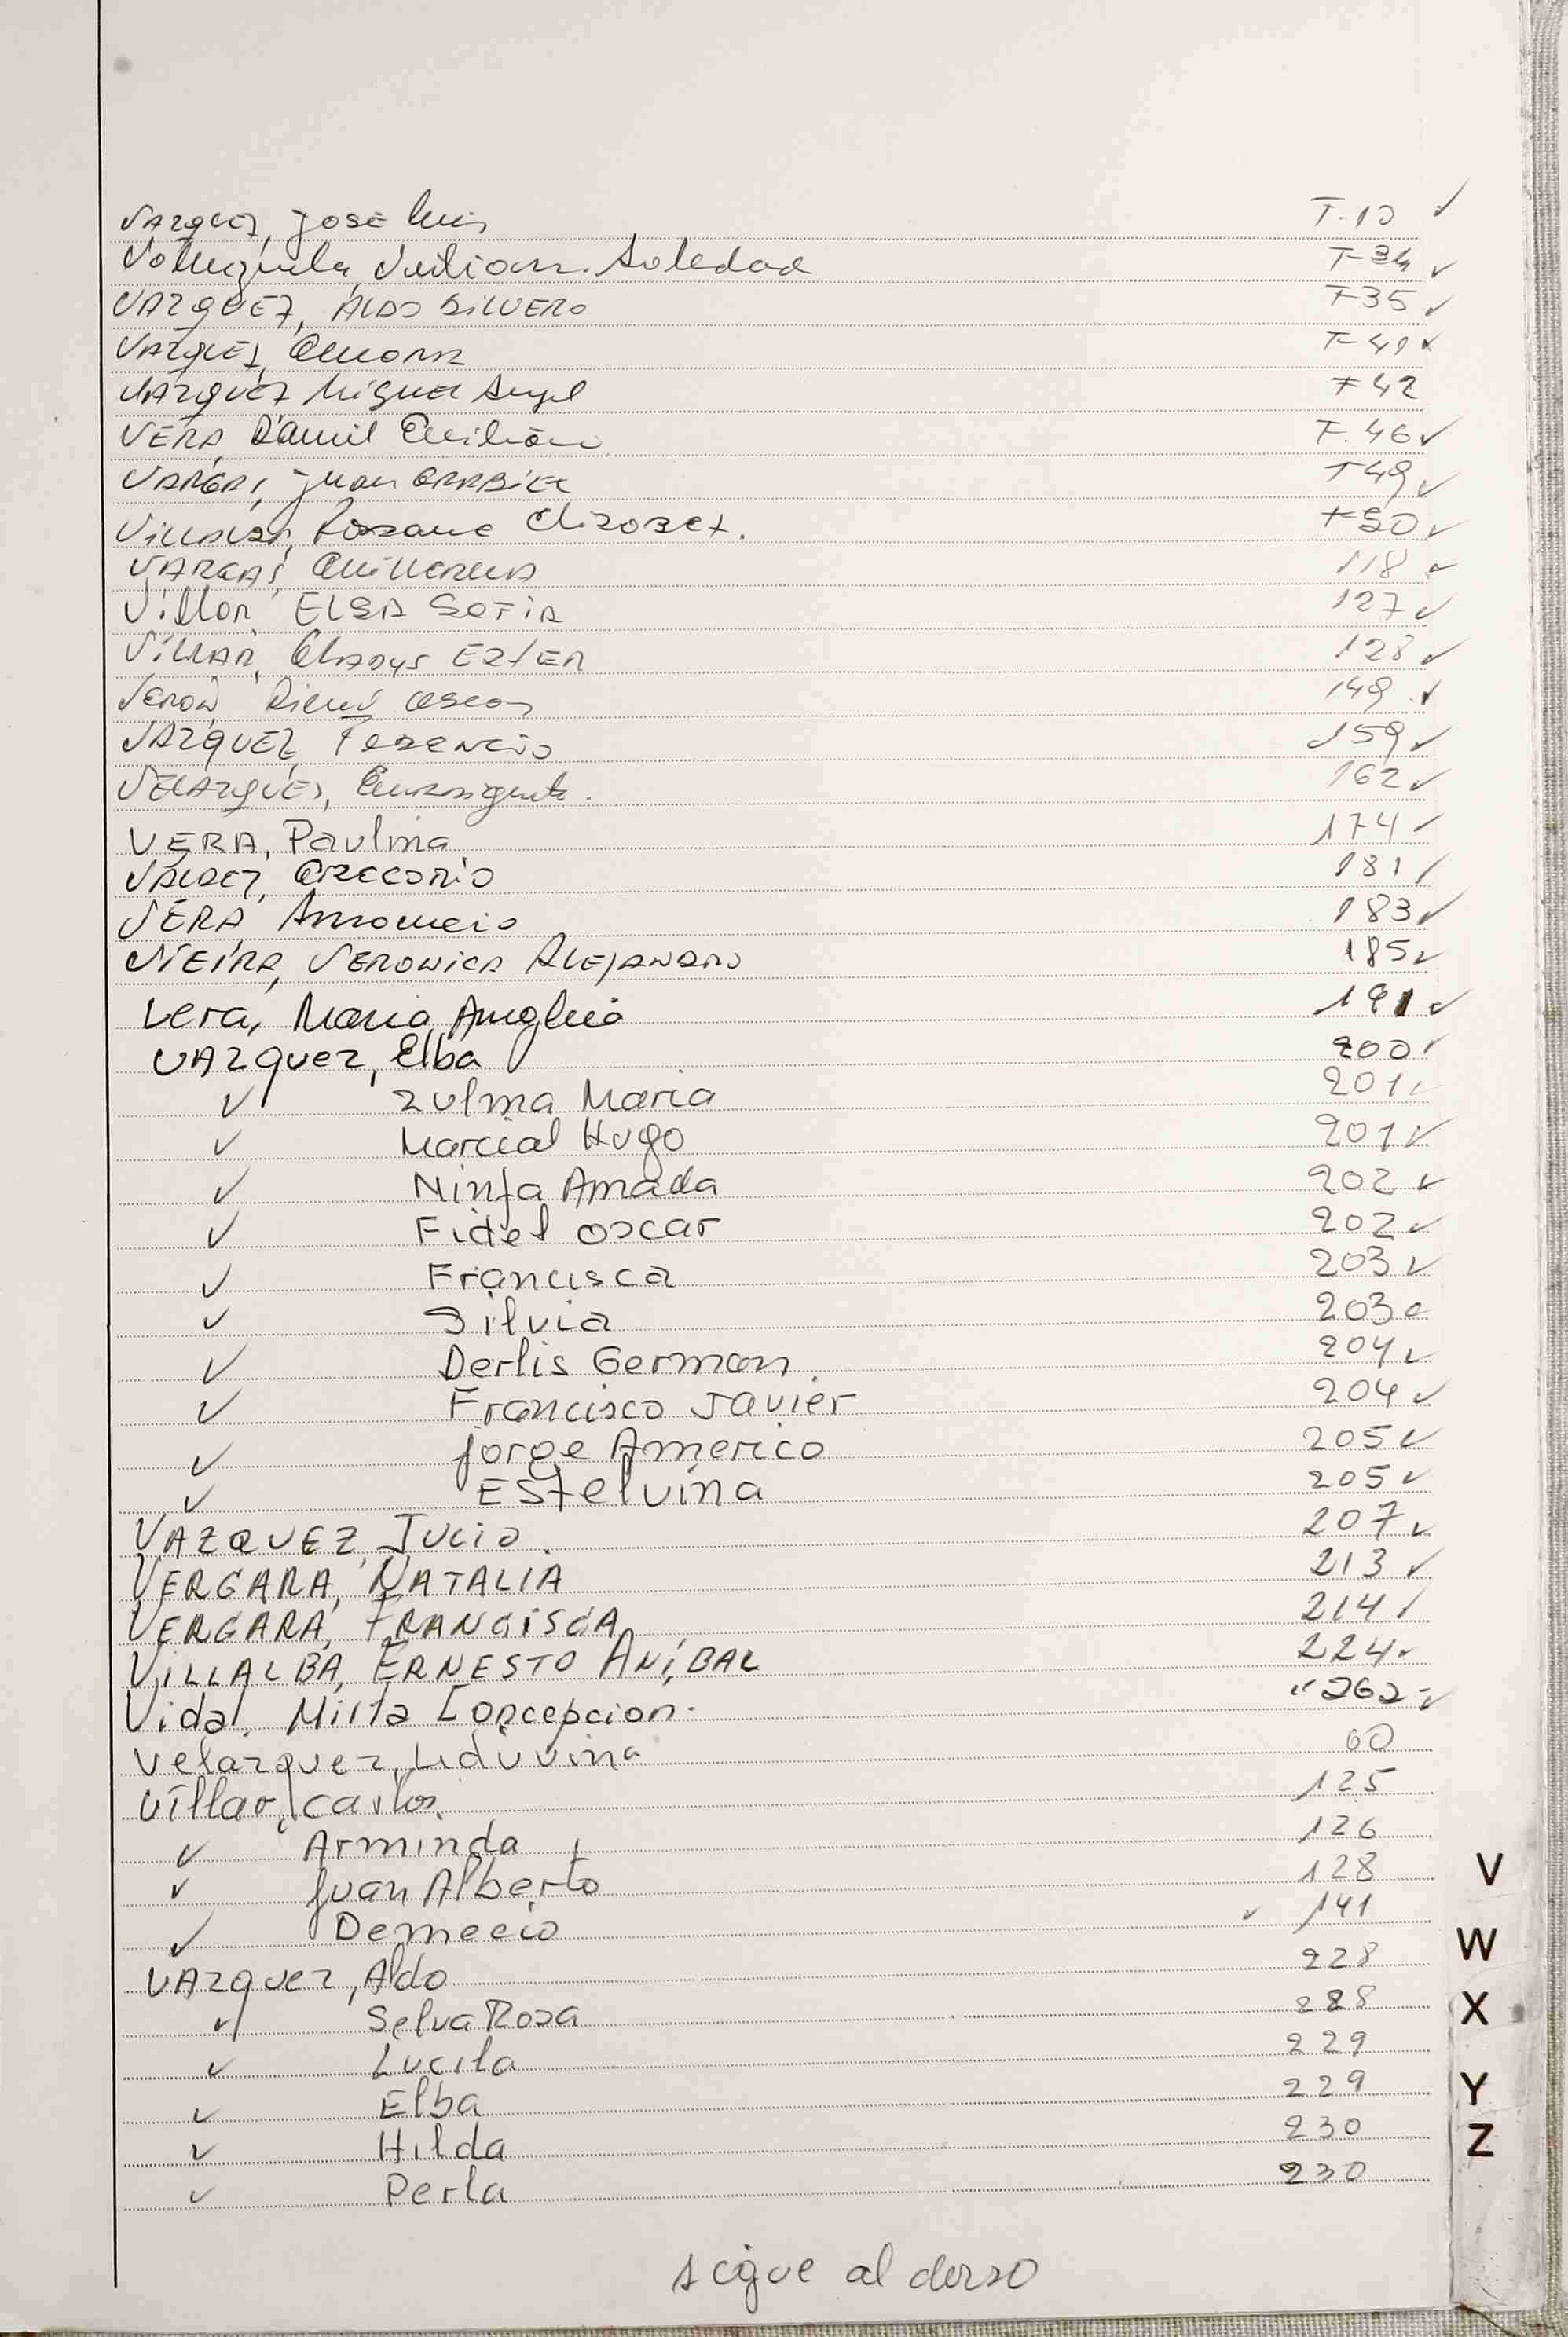 VAZQUEZ, JOSE Luis T-10 ✓
Soledad T-34 ✓
VAZQUEZ, ALDO SILVERO F35 ✓
VAZQUEZ, F-41 ✓
VAZQUEZ Miguel Angel F42
VERA, Daniel Emiliano F.46 ✓
VARGAS, Juan GABRIEL F49 ✓
Elizabet. F50 ✓
VARGAS, Guillermina 118 ✓
Villar, ELSA SOFIA 127 ✓
VILLAR, GLADYS EZTER 128 ✓
Oscar 149 ✓
VAZQUEZ, 159 ✓
VELAZQUEZ, 162 ✓
VERA, Paulina 174 ✓
VALDEZ, GREGORIO 181 ✓
VERA, 183 ✓
VIEIRA, VERONICA ALEJANDRA 185 ✓
Vera, Maria 191 ✓
VAZquez, Elba 200 ✓
✓ Zulma Maria 201 ✓
✓ Marcial Hugo 201 ✓
✓ Ninfa Amada 202 ✓
✓ Fidel oscar 202 ✓
✓ Francisca 203 ✓
✓ Silvia 203 ✓
✓ Derlis German. 204 ✓
✓ Francisco Javier 204 ✓
✓ Jorge Americo 205 ✓
✓ EStelvina 205 ✓
VAZQUEZ, JULIO. 207 ✓
VERGARA, NATALIA 213 ✓
VERGARA, FRANCISCA 214 ✓
VILLALBA, ERNESTO ANÍBAL 224 ✓
Vidal. Mirta Concepcion. " 262 - ✓
Velazquez, Liduvina 60
Villar, Carlos. 125
✓ Arminda 126
✓ Juan Alberto 128
✓ Demecio ✓ 141
VAZquez, Aldo 228
✓ Selva Rosa 228
✓ Lucila 229
✓ Elba 229
✓ Hilda 230
✓ Perla 230
sigue al dorso
V
W
X
Y
Z